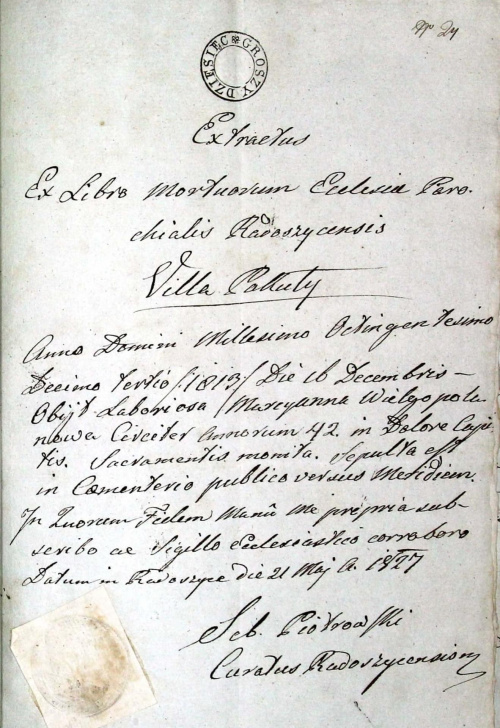 No 24
DZIESIEC GROSZY
Extractus
Ex Libro Mortuorum Ecclesia Paro-
chialis Radoszycensis
Villa Pakuty
Anno Domini Millesimo Octingentesimo
Decimo tertio /1813/ Die 16 Decembris -
Obijt Laboriosa Marcyanna Wielgopola
nowa Circiter Annorum 42. in Dolore Capi
tis. Sacramentis monita. Sepulta est
in Cœmenterio publico versus Meridiem.
In Quorum Fidem Manũ me propria sub-
scribo ac Sigillo Ecclesiastico corroboro
Datum in Radoszyce die 21 Maj A. 1827
Seb. Piotrowski
Curatus Radoszycensis